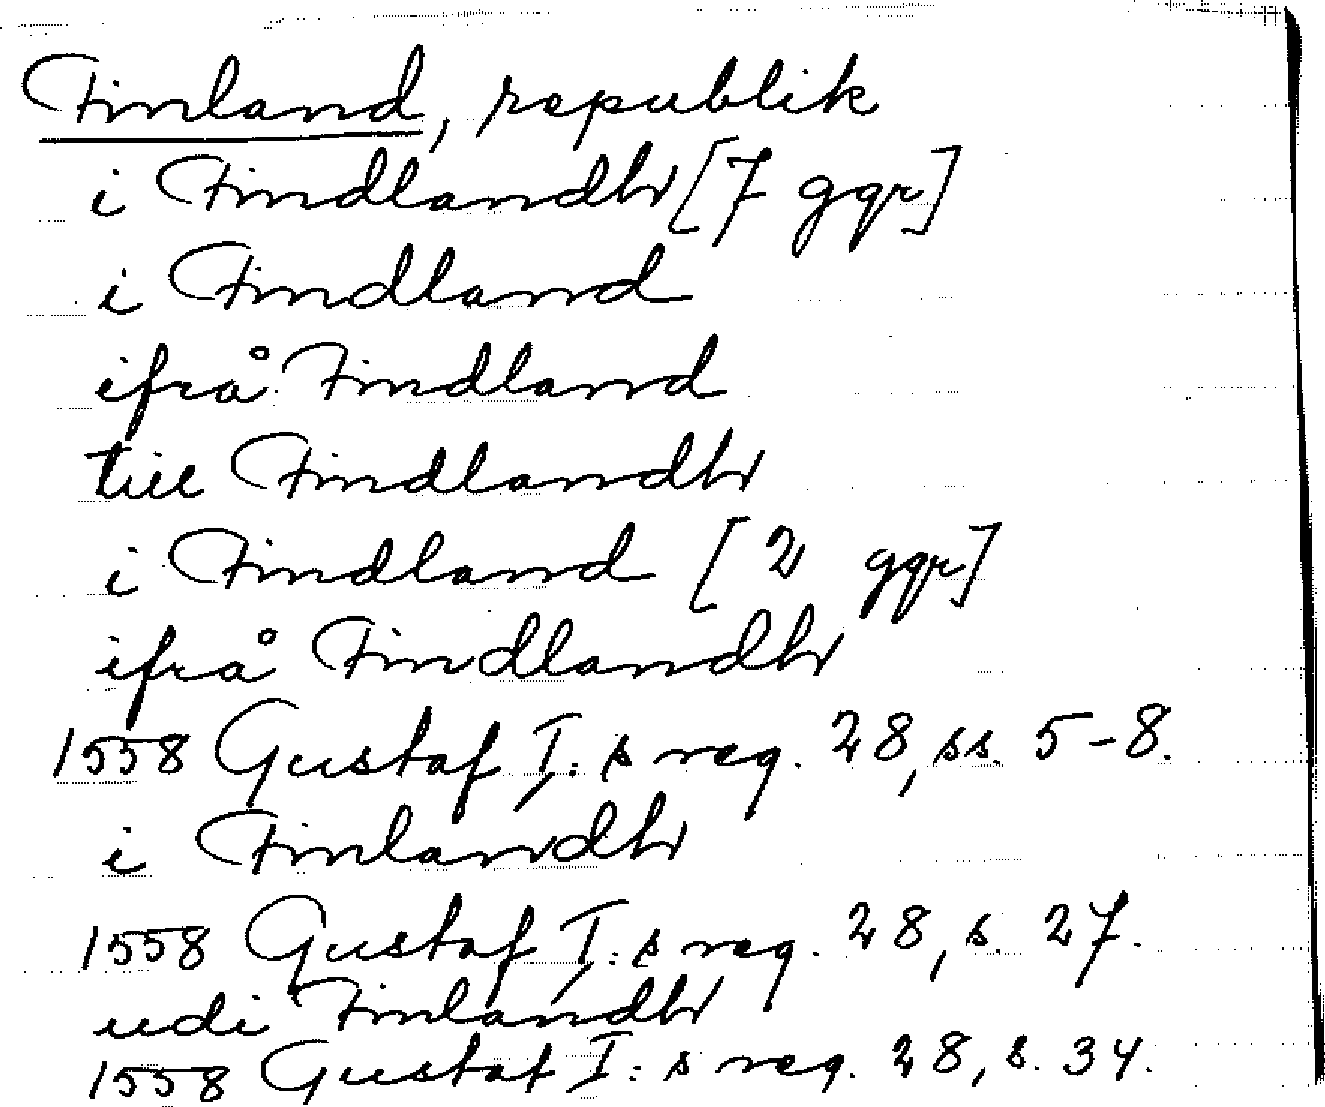 Finland, republik
i Findlandh [7 ggr]
i Findland
ifrå Findland
till Findlandh
i Findland [2 ggr]
ifrå Findlandh
1558 Gustaf I:s reg. 28, ss. 5-8.
i Finlandh
1558 Gustaf I:s reg. 28, s. 27.
udi Finlandh
1558 Gustaf I:s reg. 28, s. 34.